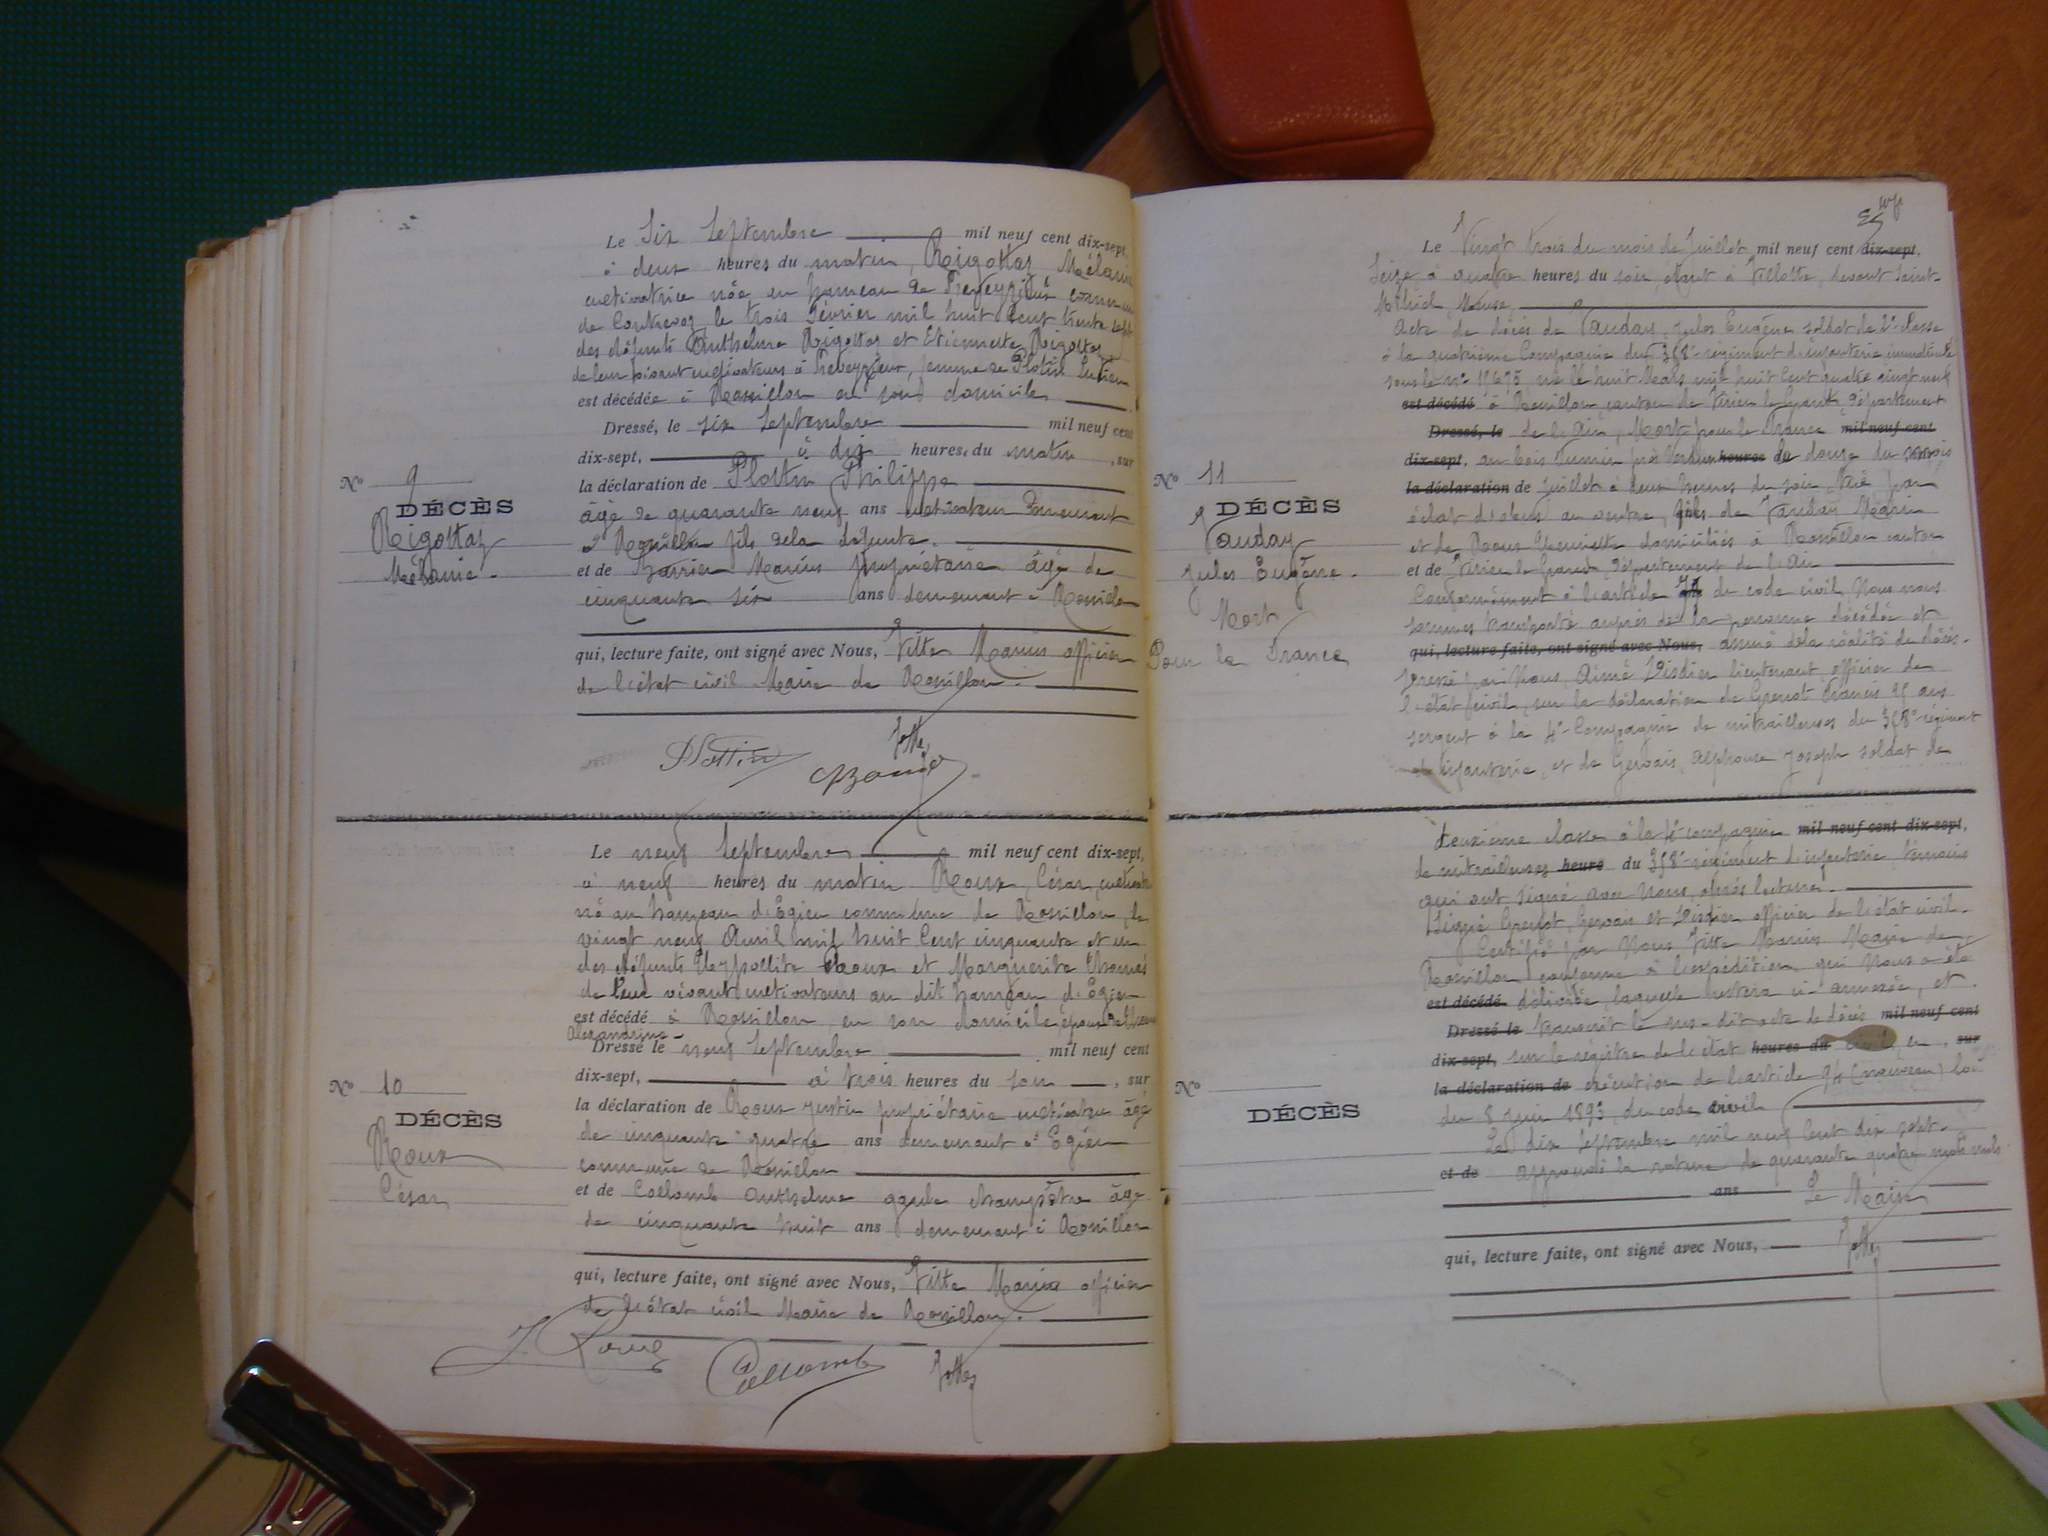 Le Six Septembre mil neuf cent dix-sept,
à deux heures du matin, Rigottaz Mélanie
cultivatrice née au hameau de Preveyzieux commune
de Contrevoz le trois Février mil huit Cent trente sept
des défunts Anthelme Rigottaz et Etiennette Rigottaz
de leur vivant cultivateurs à Preveyzieux, femme de Plotin Lucien
est décédée à Rossillon en son domicile
Dressé, le six Septembre mil neuf cent
dix-sept, à dix heures du matin, sur
la déclaration de Plottin Philippe
âgé de quarante neuf ans cultivateur Demeurant
à Rossillon fils de la défunte.
et de Marius propriétaire âgé de
cinquante six ans demeurant à Rossillon
qui, lecture faite, ont signé avec Nous, Vitte Marius officier
de l'état civil Maire de Rossillon.
No 9
DÉCÈS
Rigottaz
Mélanie.
Plottin
Vitte
Le neuf Septembre mil neuf cent dix-sept,
à neuf heures du matin Roux, César, cultivateur
né au hameau d'Egieu commune de Rossillon, le
vingt neuf Avril mil huit Cent cinquante et un
des défunts Hyppollite Roux et Marguerite
de leur vivant cultivateurs au dit hameau d'Egieu
est décédé à Rossillon, en son domicile époux de
Alexandrine
Dressé le neuf Septembre mil neuf cent
dix-sept, à trois heures du soir, sur
la déclaration de Roux Justin propriétaire cultivateur âgé
de cinquante quatre ans demeurant à Egieu
commune de Rossillon
et de Collomb Anthelme garde champêtre âgé
de cinquante huit ans demeurant à Rossillon
qui, lecture faite, ont signé avec Nous, Vitte Marius officier
de l'état civil Maire de Rossillon.
No 10
DÉCÈS
Roux
César
J. Roux
Collomb
Vitte
Le Vingt trois du mois de Juillet mil neuf cent dix-sept,
Seize, à quatre heures du soir, étant à Villotte, devant Saint-
Mihiel, Meuse,
Acte de décès de Vauday, Jules Eugène soldat de 2e classe
à la quatrième Compagnie du 358e régiment d'infanterie immatriculé
sous le no 11675, né le huit Mars mil huit Cent quatre vingt neuf
est décédé à Rossillon, canton de Virieu le Grand, Département
Dressé, le de l'Ain, Mort pour la France mil neuf cent
dix-sept, au bois Fumin près Verdun heures du le douze du mois
la déclaration de Juillet à deux heures du soir, Tué par
éclat d'obus au ventre, fils de Vauday Marin
et de Roux Henriette domiciliés à Rossillon canton
et de Virieu le Grand, Département de l'Ain
Conformément à l'article 77 du code civil, Nous nous
sommes transporté auprès de la personne décédée et
qui, lecture faite, ont signé avec Nous, assuré de la réalité du décès.
Dressé par Nous, Aimé Disdier lieutenant officier de
l'état civil, sur la déclaration de Grenot Francis 25 ans
sergent à la 4e Compagnie de mitrailleuses du 358e régiment
d'infanterie, et de Gervais, Alphonse Joseph soldat de
No 11
DÉCÈS
Vauday
Jules Eugène.
Mort
Pour la France
deuxième classe à la 4e compagnie mil neuf cent dix-sept,
de mitrailleuses heure du 358e régiment d'infanterie témoins
qui ont signé avec Nous, après lecture.
Signé Grenot, Gervais et Disdier officier de l'état civil.
Certifié par Nous Vitte Marius Maire de
Rossillon, conforme à l'expédition, qui Nous a été
est décédé délivrée, laquelle restera ci-annexée, et
Dressé le transcrit le sus-dit acte de décès mil neuf cent
dix-sept, sur le registre de l'état heures du civil, en, sur
la déclaration de exécution de l'article 94 (nouveau) loi
du 8 juin 1893, du code civil
Le dix Septembre mil neuf Cent dix sept.
et de approuvé la rature de quarante quatre mots nuls
ans Le Maire
qui, lecture faite, ont signé avec Nous, Vitte
No
DÉCÈS